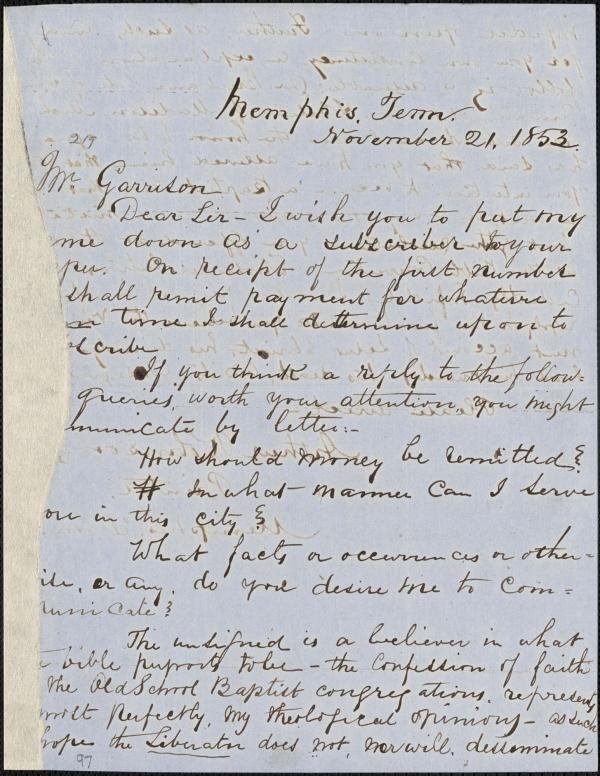 Memphis, Tenn.
November 21, 1853.
219
Mr Garrison
Dear Sir - I wish you to put my
me down as a subscriber to your
per. On receipt of the first number
shall remit payment for whatever
time I shall determine upon to
scribe
If you think a reply to the follow=
queries, worth your attention, you might
municate by letter:-
How should money be remitted?
In what manner can I serve
ou in this city?
What facts or occurrences or other=
ise, or any, do you desire me to com=
municate?
The unsigned is a believer in what
bible purports to be - the Confession of faith
the Old School Baptist congregations, represents
most perfectly, my theological opinions - as such
hope the Liberator does not, nor will, desseminate
97